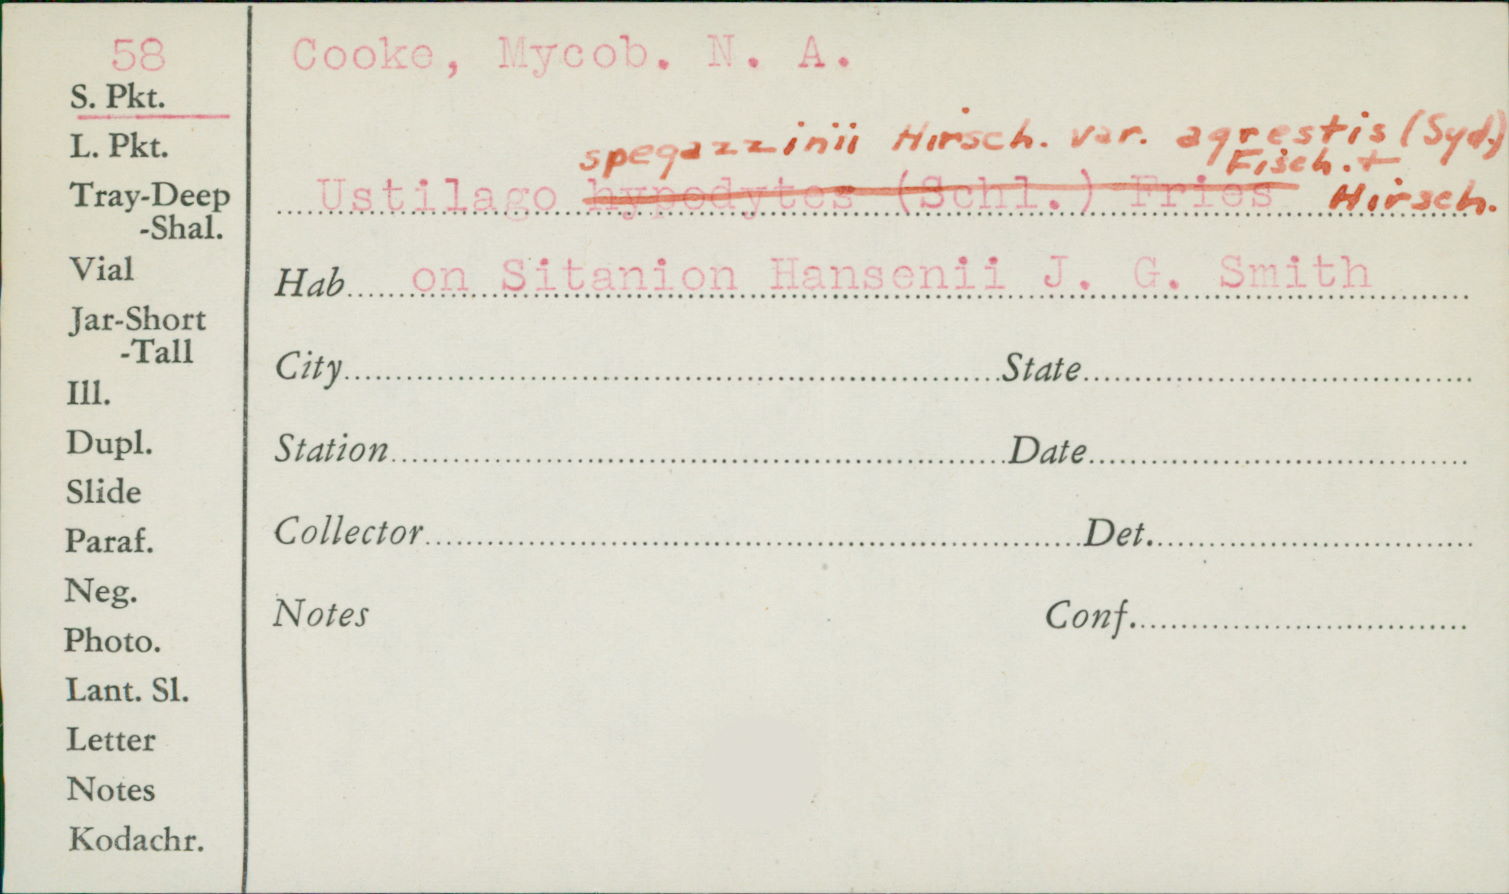 58
S. Pkt.
L. Pkt.
Tray-Deep
-Shal.
Vial
Jar-Short
-Tall
Ill.
Dupl.
Slide
Paraf.
Neg.
Photo.
Lant. Sl.
Letter
Notes
Kodachr.
Cooke, Mycob. N. A.
spegazzinii Hirsch. var. agrestis (Syd.)
Fisch. +
Ustilago hypodytes (Schl.) Fries Hirsch.
Hab. on Sitanion Hansenii J. G. Smith
City State
Station Date
Collector Det.
Notes Conf.